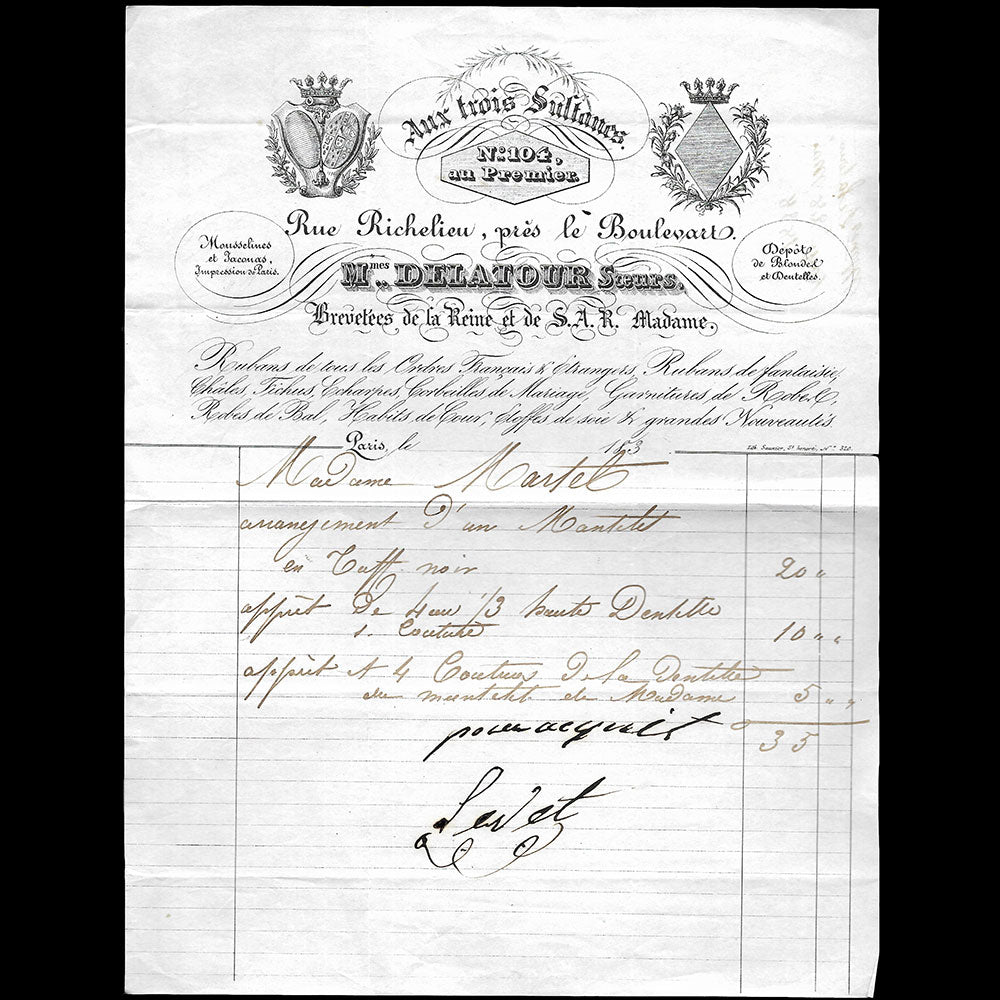 Aux trois Sultanes.
N° 104,
au Premier.
Rue Richelieu, près le Boulevart.
Mousselines
et Jaconas,
Impression de Paris.
Mmes DELATOUR Sœurs,
Dépôt
de Blondes
et Dentelles.
Brevetées de la Reine et de S.A.R. Madame.
Rubans de tous les Ordres Français & Etrangers, Rubans de fantaisie,
Châles, Fichus, Echarpes, Corbeilles de Mariage, Garnitures de Robes,
Robes de Bal, Habits de Cour, Etoffes de soie & grandes Nouveautés
Paris, le 1853
Lith. Saunier, St honoré, No. 320.
Madame Martel
arrangement d'un Mantelet
en Taff. noir 20 "
apprêt de 4 au 1/3 haute Dentelle
1. Couture 10 " "
apprêt et 4 Coutures de la Dentelle
du mantelet de Madame 5 " "
pour acquit 35
Levet